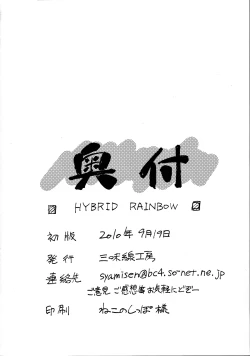 奥付
HYBRID RAINBOW
初版 2010年9月19日
発行 三味線工房
連絡先 syamisen@bc4.so-net.ne.jp
ご意見ご感想等お気軽にどぞー
印刷 ねこのしっぽ様